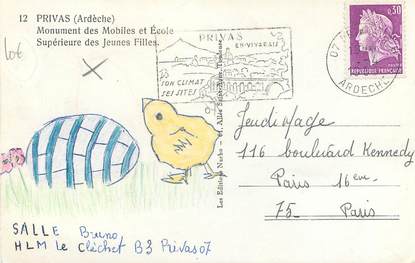 12 PRIVAS (Ardèche)
Monument des Mobiles et École
Supérieure des Jeunes Filles.
lot
PRIVAS
EN VIVARAIS
SON CLIMAT
SES SITES
0.30
REPUBLIQUE FRANÇAISE
07 P
ARDECHE
Les Editions Narbo
Jeudi Image
116 boulevard Kennedy
Paris 16em
75 - Paris
SALLE Bruno
HLM le clèchet B3 Privas 07